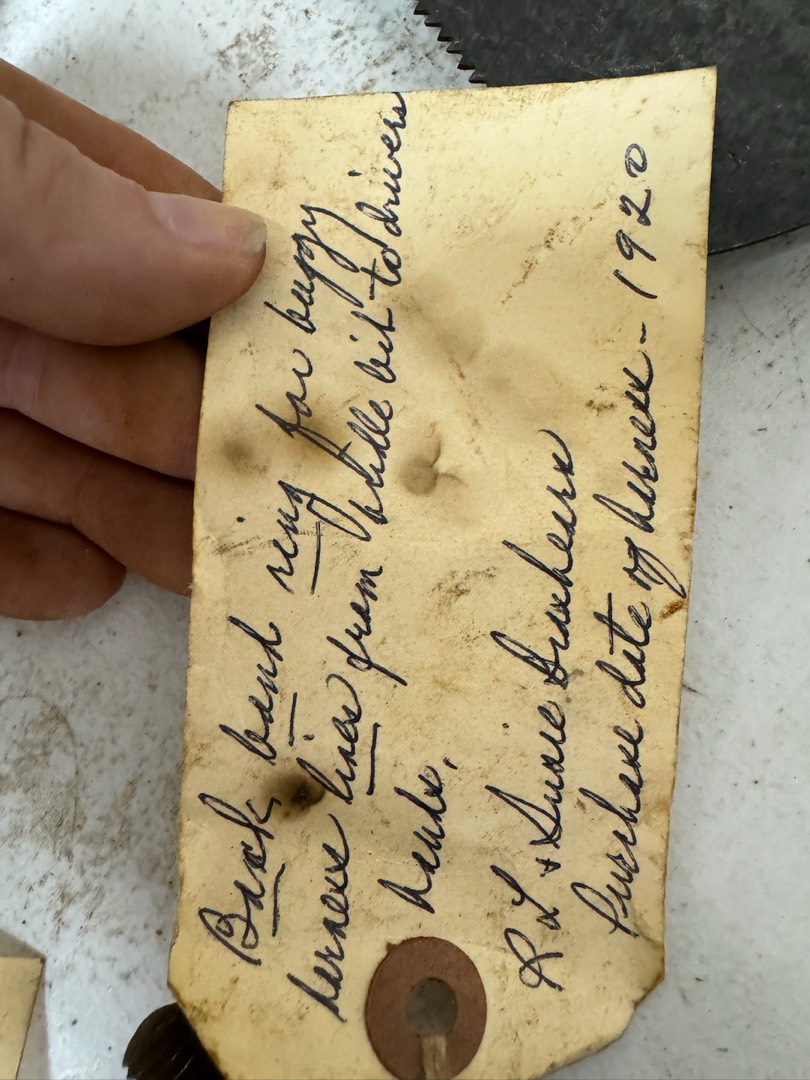 Back band ring for buggy
harness lines from bridle bit to drivers
hands.
R L + Susie Brashears
Purchase date of harness - 1920